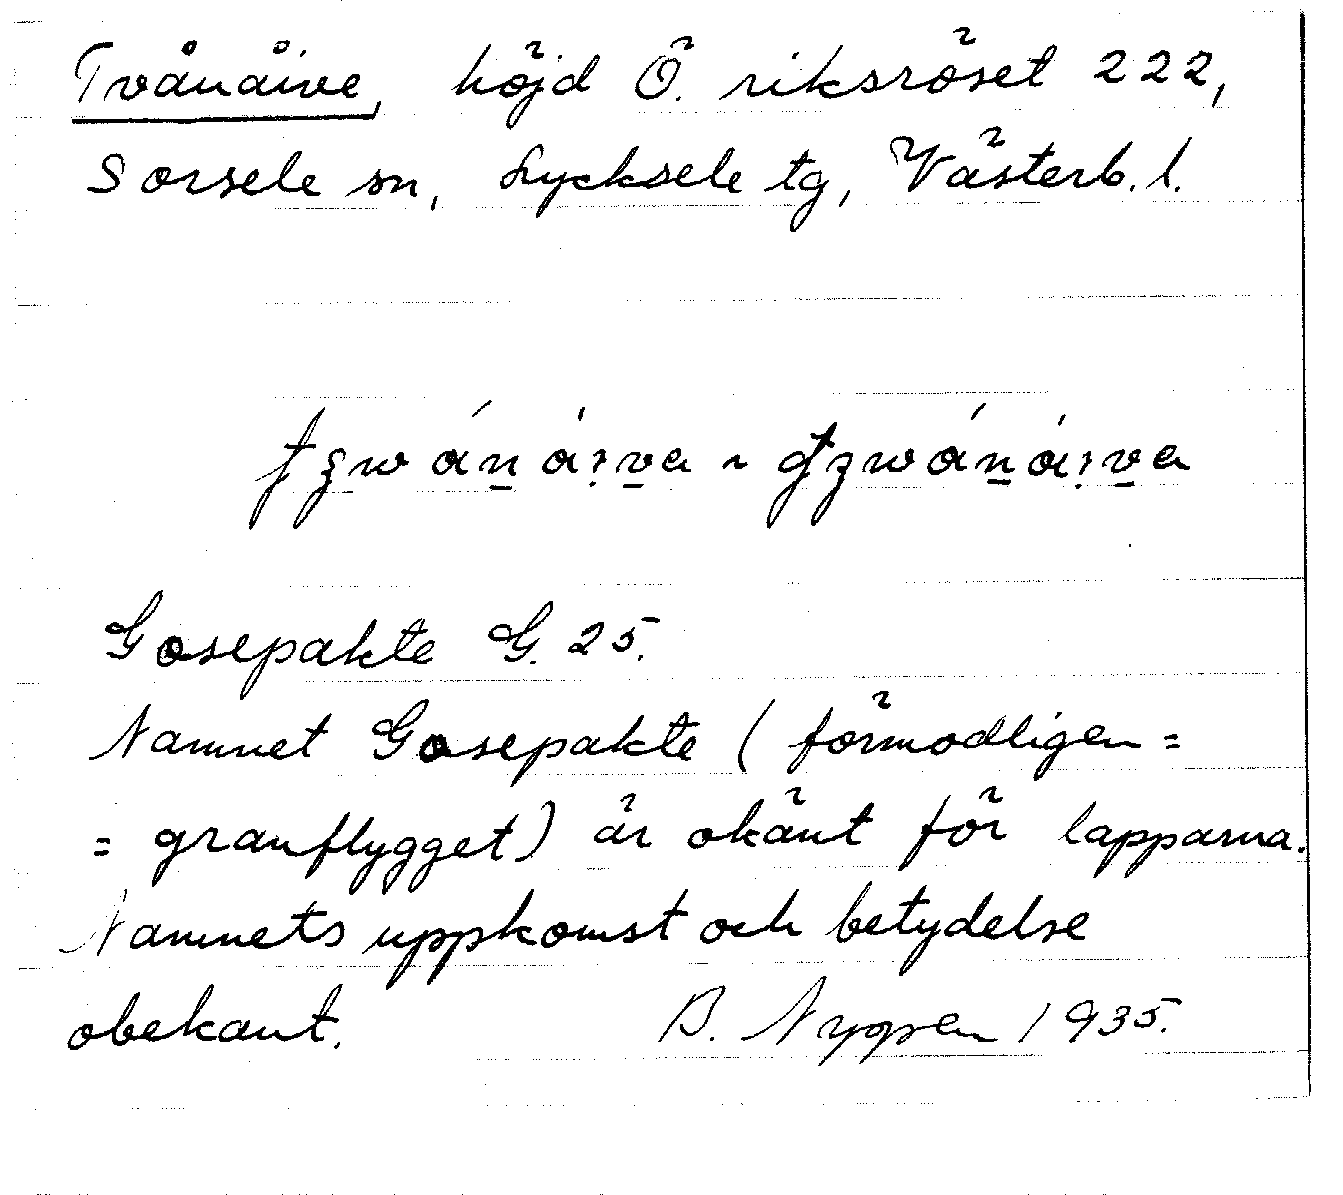 Tvånåive, höjd Ö. riksröset 222,
Sorsele sn, Lycksele tg, Västerb. l.
Gosepakte G. 25.
Namnet Gosepakte (förmodligen =
= granflygget) är okänt för lapparna.
Namnets uppkomst och betydelse
obekant. B. Nygren 1935.